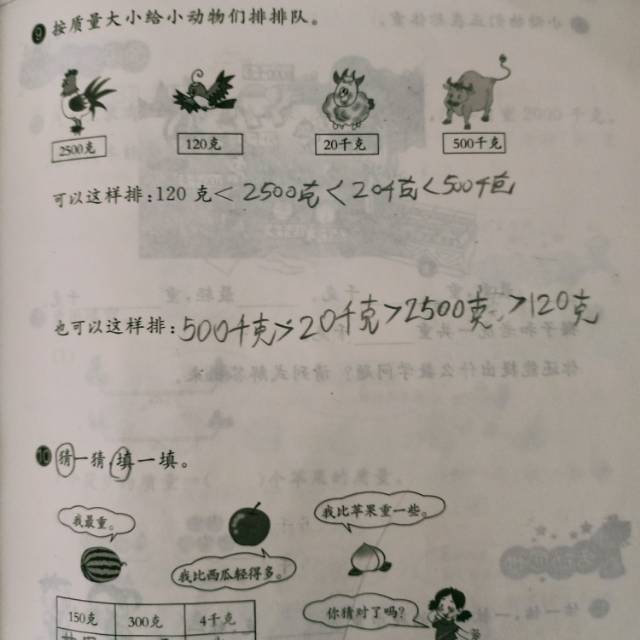 9 按质量大小给小动物们排排队。
2500克 120克 20千克 500千克
可以这样排:120 克< 2500克 < 20千克 < 500千克
也可以这样排: 500千克 > 20千克 > 2500克 > 120克
10 猜一猜,填一填。
我最重。
我比苹果重一些。
我比西瓜轻得多。
150克 300克 4千克
你猜对了吗?